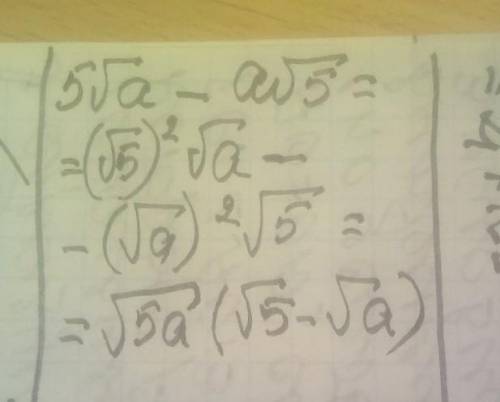 5√a - a√5 =
= (√5)² √a -
- (√a)² √5 =
= √5a (√5 - √a)